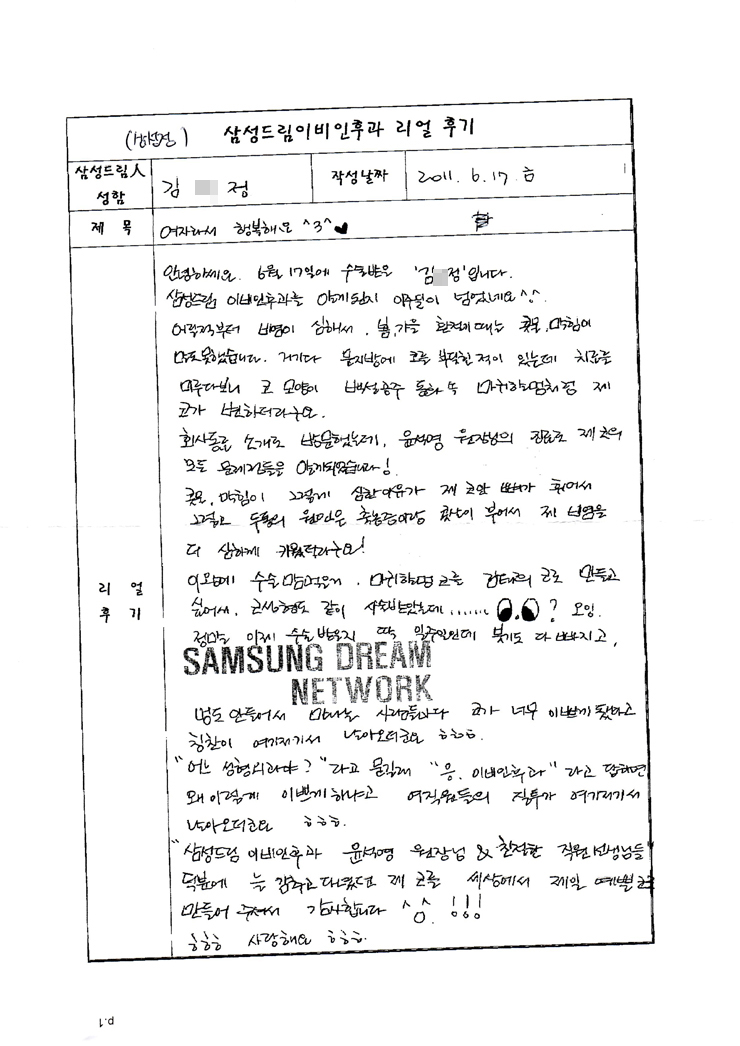 삼성드림이비인후과 리얼 후기
삼성드림人
성함
김 정
작성날짜
2011. 6. 17 금
제 목
여자라서 행복해요 ^3^♥
리 얼
후 기
안녕하세요. 6월 17일에 수술받은 '김 정'입니다.
삼성드림 이비인후과를 알게된지 이주일이 넘었네요^^.
어릴적부터 비염이 심해서, 봄,가을 환절기때는 콧물,막힘이
말도못했습니다. 거기다 문지방에 코를 부딪힌적이 있는데 치료를
미루다보니 코 모양이 백설공주 동화 속 마귀할멈처럼 제
코가 변하더라구요.
회사동료 소개로 방문했는데, 윤석영 원장님의 진료로 제 코의
모든 문제점들을 알게되었습니다!
콧물,막힘이 그렇게 심한이유가 제 코안 뼈가 휘어서
그렇고 두통의 원인은 축농증이랑 콧살이 부어서 제 비염을
더 심하게 키웠더라구요!
이왕에 수술 맘먹은거, 마귀할멈 코를 코로 만들고
싶어서, 코성형도 같이 수술받았는데 ...... ? 오잉.
정말 이제 수술 받은지 딱 일주일인데 붓기도 다 빠지고,
SAMSUNG DREAM
NETWORK
멍도 안들어서 만나는 사람들마다 코가 너무 이쁘게 됐다고
칭찬이 여기저기서 날아오더군요 ㅎㅎㅎ.
"어느 성형외과야?"라고 물길래 "응. 이비인후과"라고 답하면
왜이렇게 이쁘게하냐고 여직원들의 질투가 여기저기서
날아오더군요 ㅎㅎㅎ.
"삼성드림 이비인후과 윤석영 원장님 & 친절한 직원선생님들"
덕분에 늘 감추고 다녔던 제 코를 세상에서 제일 예쁜 코로
만들어 주셔서 감사합니다 ^^ !!!
ㅎㅎㅎ 사랑해요 ㅎㅎㅎ.
p.1